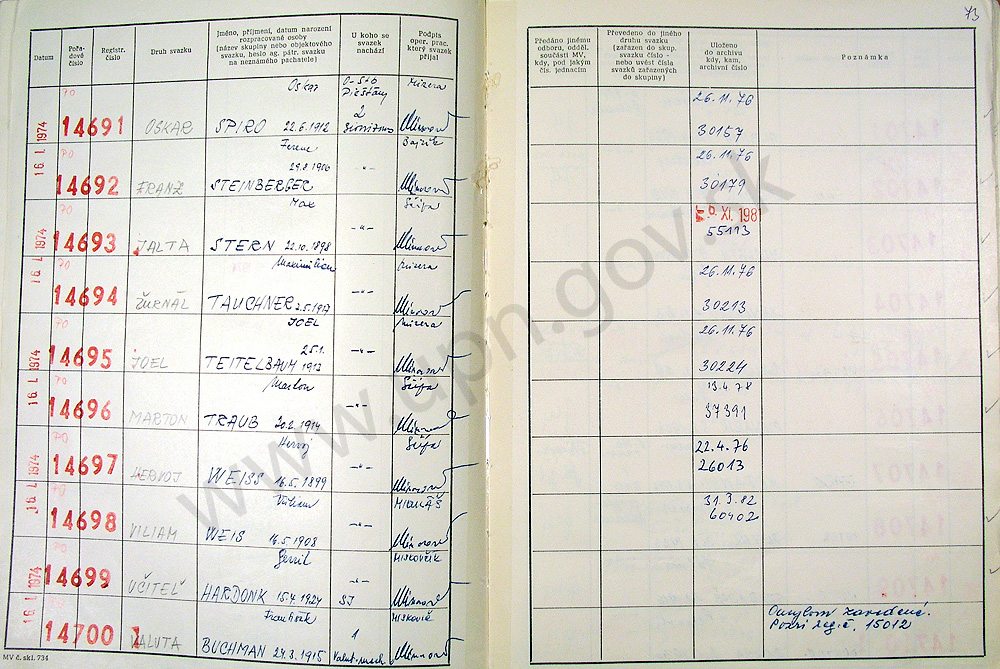 73
Datum
Pořa-
dové
číslo
Registr.
číslo
Druh svazku
Jméno, příjmení, datum narození
rozpracované osoby
(název skupiny nebo objektového
svazku, heslo ag. pátr. svazku
na neznámého pachatele)
U koho se
svazek
nachází
Podpis
oper. prac.
který svazek
přijal
Předáno jinému
odboru, odděl.
součásti MV,
kdy, pod jakým
čís. jednacím
Převedeno do jiného
druhu svazku
(zařazen do skup.
svazku číslo -
nebo uvést čísla
svazků zařazených
do skupiny)
Uloženo
do archivu
kdy, kam,
archivní číslo
Poznámka
16. I. 1974
70
14691
OSKAR
Oskar
SPIRO 22.6.1912
O-ŠtB
Piešťany
2
Sionizmus
Mizera
26.11.76
30157
70
14692
FRANZ
Ferenc
29.8.1906
STEINBERGER
-"-
26.11.76
30179
16. I. 1974
70
14693
JALTA
Max
STERN 22.10.1898
-"-
XI. 1981
55113
70
14694
ŽURNÁL
Maximilian
TAUCHNER 2.5.1917
-"-
Mizera
26.11.76
30213
16. I. 1974
70
14695
JOEL
JOEL
25.1.
TEITELBAUM 1913
-"-
Mizera
26.11.76
30224
70
14696
MARTON
Marton
TRAUB 20.2.1914
-"-
19.4.78
37391
16. I. 1974
70
14697
HERVOJ
Hervoj
WEISS 16.5.1899
-"-
22.4.76
26013
70
14698
VILIAM
Viliam
WEIS 16.5.1908
-"-
MIKULÁŠ
31.3.82
60402
16. I. 1974
70
14699
UČITEĽ
HARDONK 15.4.1924
-"-
SJ
14700
VALUTA
František
BUCHMAN 24.3.1915
1
Omylom zavedené.
Pozri reg.č. 15012
MV č. skl. 734
www.upn.gov.sk